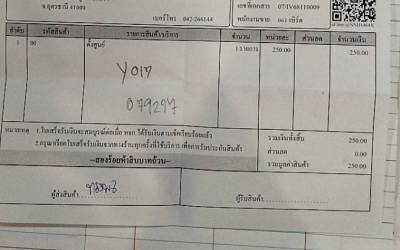 จ.อุดรธานี 41000
เบอร์โทร 042-266144
เลขที่เอกสาร 074V68110009
พนักงานขาย 061 เบิร์ด
ลำดับ รหัสสินค้า รายการสินค้า/บริการ จำนวน หน่วยละ ส่วนลด จำนวนเงิน
1 00 ตั้งศูนย์ 1 รายการ 250.00 250.00
หมายเหตุ 1.ใบเสร็จรับเงินจะสมบูรณ์ต่อเมื่อ หจก.ได้รับเงินตามเช็คเรียบร้อยแล้ว
2.กรุณาเรียกใบเสร็จรับเงินจากทางร้านทุกครั้งที่ใช้บริการ เพื่อการรับประกันสินค้า
รวมเงินทั้งสิ้น 250.00
ส่วนลด 0.00
รวมมูลค่าสินค้า 250.00
---สองร้อยห้าสิบบาทถ้วน---
ผู้ส่งสินค้า
ผู้รับสินค้า